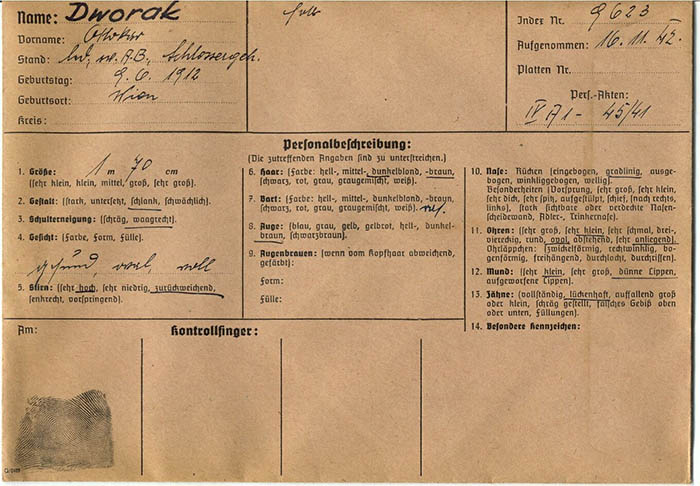 Name: Dworak
Vorname: Ottokar
Stand: led., w. A.B., Schlossergeh.
Geburtstag: 9. 6. 1912
Geburtsort: Wien
Kreis:
Index Nr. 9623
Aufgenommen: 16. 11. 42.
Platten Nr.
Pers.-Akten:
IV A 1 - 45/41
Personalbeschreibung:
(Die zutreffenden Angaben sind zu unterstreichen.)
1. Größe: 1 m 70 cm
(sehr klein, klein, mittel, groß, sehr groß).
2. Gestalt: (stark, untersetzt, schlank, schwächlich).
3. Schulterneigung: (schräg, waagrecht).
4. Gesicht: (Farbe, Form, Fülle).
gesund, oval, voll
5. Stirn: (sehr hoch, sehr niedrig, zurückweichend,
senkrecht, vorspringend).
6. Haar: (Farbe: hell-, mittel-, dunkelblond, -braun,
schwarz, rot, grau, graugemischt, weiß).
7. Bart: (Farbe: hell-, mittel-, dunkelblond, -braun,
schwarz, rot, grau, graugemischt, weiß).
8. Auge: (blau, grau, gelb, gelbrot, hell-, dunkel-
braun, schwarzbraun).
9. Augenbrauen: (wenn vom Kopfhaar abweichend,
gefärbt):
Form:
Fülle:
10. Nase: Rücken (eingebogen, gradlinig, ausge-
bogen, winkliggebogen, wellig).
Besonderheiten (Vorsprung, sehr groß, sehr klein,
sehr dick, sehr spitz, aufgestülpt, schief, [nach rechts,
links], stark sichtbare oder verdeckte Nasen-
scheidewand, Adler-, Trinkernase).
11. Ohren: (sehr groß, sehr klein, sehr schmal, drei-,
viereckig, rund, oval, abstehend, sehr anliegend).
Ohrläppchen: (zwickelförmig, rechtwinklig, bo-
genförmig, freihängend, durchlocht, durchrissen).
12. Mund: (sehr klein, sehr groß, dünne Lippen,
aufgeworfene Lippen).
13. Zähne: (vollständig, lückenhaft, auffallend groß
oder klein, schräg gestellt, falsches Gebiß oben
oder unten, Füllungen).
14. Besondere Kennzeichen:
Am:
Kontrollfinger: